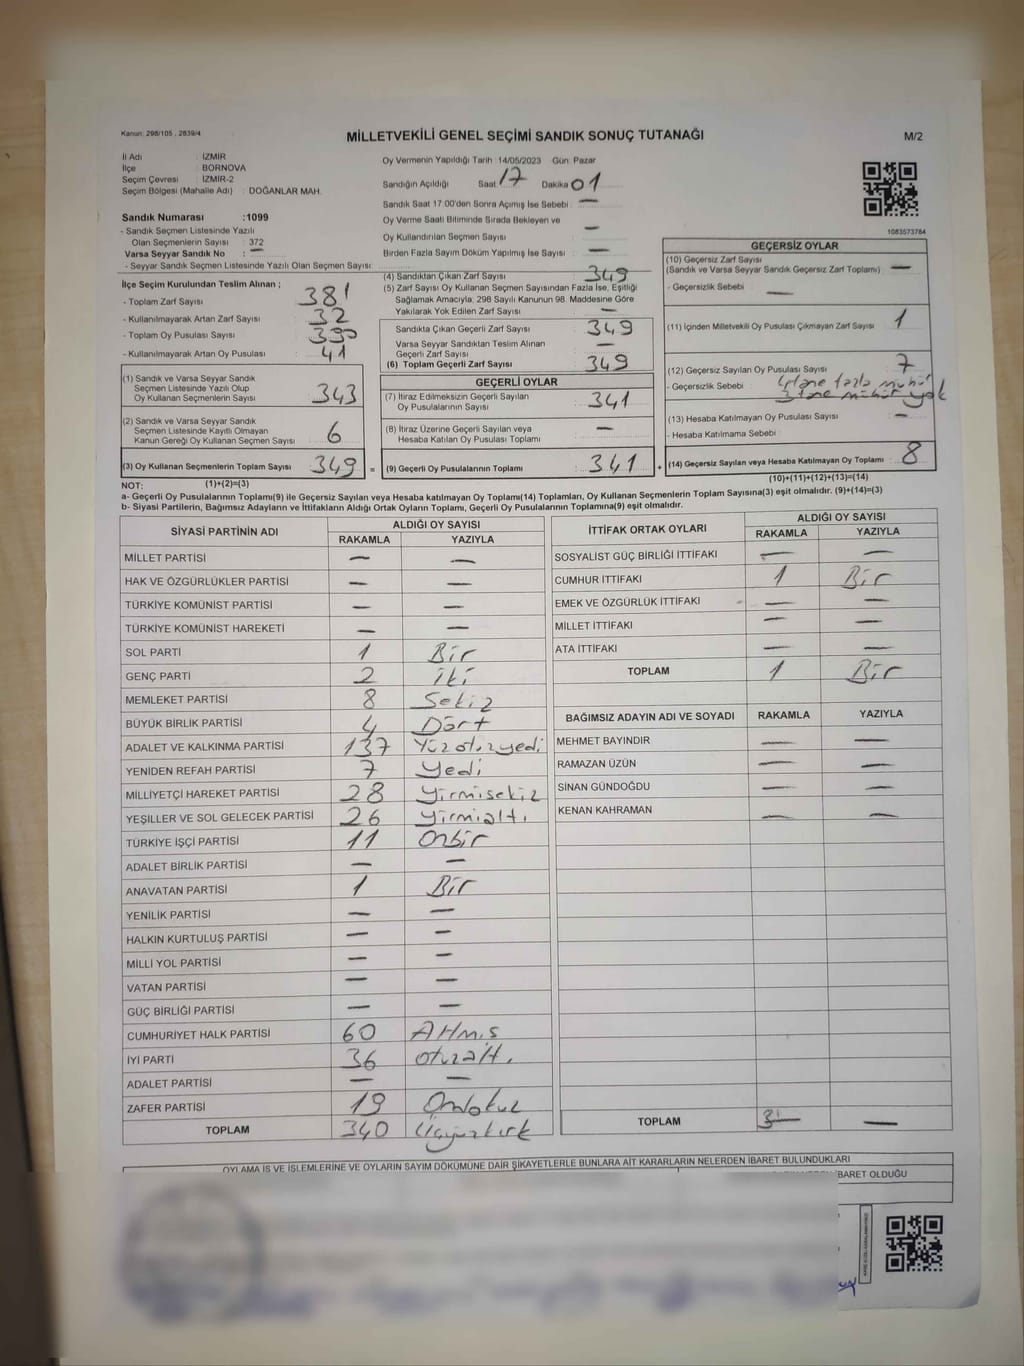 Kanun: 298/105 , 2839/4
MİLLETVEKİLİ GENEL SEÇİMİ SANDIK SONUÇ TUTANAĞI
M/2
İl Adı : İZMİR
İlçe : BORNOVA
Seçim Çevresi : İZMİR-2
Seçim Bölgesi (Mahalle Adı) : DOĞANLAR MAH.
Sandık Numarası :1099
- Sandık Seçmen Listesinde Yazılı
Olan Seçmenlerin Sayısı : 372
Varsa Seyyar Sandık No : —
- Seyyar Sandık Seçmen Listesinde Yazılı Olan Seçmen Sayısı:
Oy Vermenin Yapıldığı Tarih 14/05/2023 Gün: Pazar
Sandığın Açıldığı Saat 17 Dakika 01
Sandık Saat 17:00'den Sonra Açımış İse Sebebi : —
Oy Verme Saati Bitiminde Sırada Bekleyen ve
Oy Kullandırılan Seçmen Sayısı : —
Birden Fazla Sayım Döküm Yapılmış İse Sayısı : —
1083573784
İlçe Seçim Kurulundan Teslim Alınan ;
- Toplam Zarf Sayısı : 381
- Kullanılmayarak Artan Zarf Sayısı : 32
- Toplam Oy Pusulası Sayısı : 390
- Kullanılmayarak Artan Oy Pusulası : 41
(1) Sandık ve Varsa Seyyar Sandık
Seçmen Listesinde Yazılı Olup
Oy Kullanan Seçmenlerin Sayısı : 343
(2) Sandık ve Varsa Seyyar Sandık
Seçmen Listesinde Kayıtlı Olmayan
Kanun Gereği Oy Kullanan Seçmen Sayısı : 6
(3) Oy Kullanan Seçmenlerin Toplam Sayısı : 349 =
(1)+(2)=(3)
(4) Sandıktan Çıkan Zarf Sayısı : 349
(5) Zarf Sayısı Oy Kullanan Seçmen Sayısından Fazla İse, Eşitliği
Sağlamak Amacıyla, 298 Sayılı Kanunun 98. Maddesine Göre
Yakılarak Yok Edilen Zarf Sayısı : —
Sandıkta Çıkan Geçerli Zarf Sayısı : 349
Varsa Seyyar Sandıktan Teslim Alınan
Geçerli Zarf Sayısı : —
(6) Toplam Geçerli Zarf Sayısı : 349
GEÇERLİ OYLAR
(7) İtiraz Edilmeksizin Geçerli Sayılan
Oy Pusulalarının Sayısı : 341
(8) İtiraz Üzerine Geçerli Sayılan veya
Hesaba Katılan Oy Pusulası Toplamı : —
(9) Geçerli Oy Pusulalarının Toplamı : 341 +
GEÇERSİZ OYLAR
(10) Geçersiz Zarf Sayısı
(Sandık ve Varsa Seyyar Sandık Geçersiz Zarf Toplamı) : —
- Geçersizlik Sebebi : —
(11) İçinden Milletvekili Oy Pusulası Çıkmayan Zarf Sayısı : 1
(12) Geçersiz Sayılan Oy Pusulası Sayısı : 7
- Geçersizlik Sebebi : 4 tane fazla mühür
3 tane mühür yok
(13) Hesaba Katılmayan Oy Pusulası Sayısı : —
- Hesaba Katılmama Sebebi :
(14) Geçersiz Sayılan veya Hesaba Katılmayan Oy Toplamı : 8
(10)+(11)+(12)+(13)=(14)
NOT:
a- Geçerli Oy Pusulalarının Toplamı(9) ile Geçersiz Sayılan veya Hesaba katılmayan Oy Toplamı(14) Toplamları, Oy Kullanan Seçmenlerin Toplam Sayısına(3) eşit olmalıdır. (9)+(14)=(3)
b- Siyasi Partilerin, Bağımsız Adayların ve İttifakların Aldığı Ortak Oyların Toplamı, Geçerli Oy Pusulalarının Toplamına(9) eşit olmalıdır.
SİYASİ PARTİNİN ADI ALDIĞI OY SAYISI
RAKAMLA YAZIYLA
MİLLET PARTİSİ — —
HAK VE ÖZGÜRLÜKLER PARTİSİ — —
TÜRKİYE KOMÜNİST PARTİSİ — —
TÜRKİYE KOMÜNİST HAREKETİ — —
SOL PARTİ 1 Bir
GENÇ PARTİ 2 iki
MEMLEKET PARTİSİ 8 Sekiz
BÜYÜK BİRLİK PARTİSİ 4 Dört
ADALET VE KALKINMA PARTİSİ 137 Yüzotuzyedi
YENİDEN REFAH PARTİSİ 7 Yedi
MİLLİYETÇİ HAREKET PARTİSİ 28 Yirmisekiz
YEŞİLLER VE SOL GELECEK PARTİSİ 26 Yirmialtı
TÜRKİYE İŞÇİ PARTİSİ 11 Onbir
ADALET BİRLİK PARTİSİ — —
ANAVATAN PARTİSİ 1 Bir
YENİLİK PARTİSİ — —
HALKIN KURTULUŞ PARTİSİ — —
MİLLİ YOL PARTİSİ — —
VATAN PARTİSİ — —
GÜÇ BİRLİĞİ PARTİSİ — —
CUMHURİYET HALK PARTİSİ 60 Altmış
İYİ PARTİ 36 otuzaltı
ADALET PARTİSİ — —
ZAFER PARTİSİ 19 Ondokuz
TOPLAM 340 Üçyüzkırk
İTTİFAK ORTAK OYLARI ALDIĞI OY SAYISI
RAKAMLA YAZIYLA
SOSYALİST GÜÇ BİRLİĞİ İTTİFAKI — —
CUMHUR İTTİFAKI 1 Bir
EMEK VE ÖZGÜRLÜK İTTİFAKI — —
MİLLET İTTİFAKI — —
ATA İTTİFAKI — —
TOPLAM 1 Bir
BAĞIMSIZ ADAYIN ADI VE SOYADI RAKAMLA YAZIYLA
MEHMET BAYINDIR — —
RAMAZAN ÜZÜN — —
SİNAN GÜNDOĞDU — —
KENAN KAHRAMAN — —
TOPLAM — —
OYLAMA İŞ VE İŞLEMLERİNE VE OYLARIN SAYIM DÖKÜMÜNE DAİR ŞİKAYETLERLE BUNLARA AİT KARARLARIN NELERDEN İBARET BULUNDUKLARI
BARET OLDUĞU